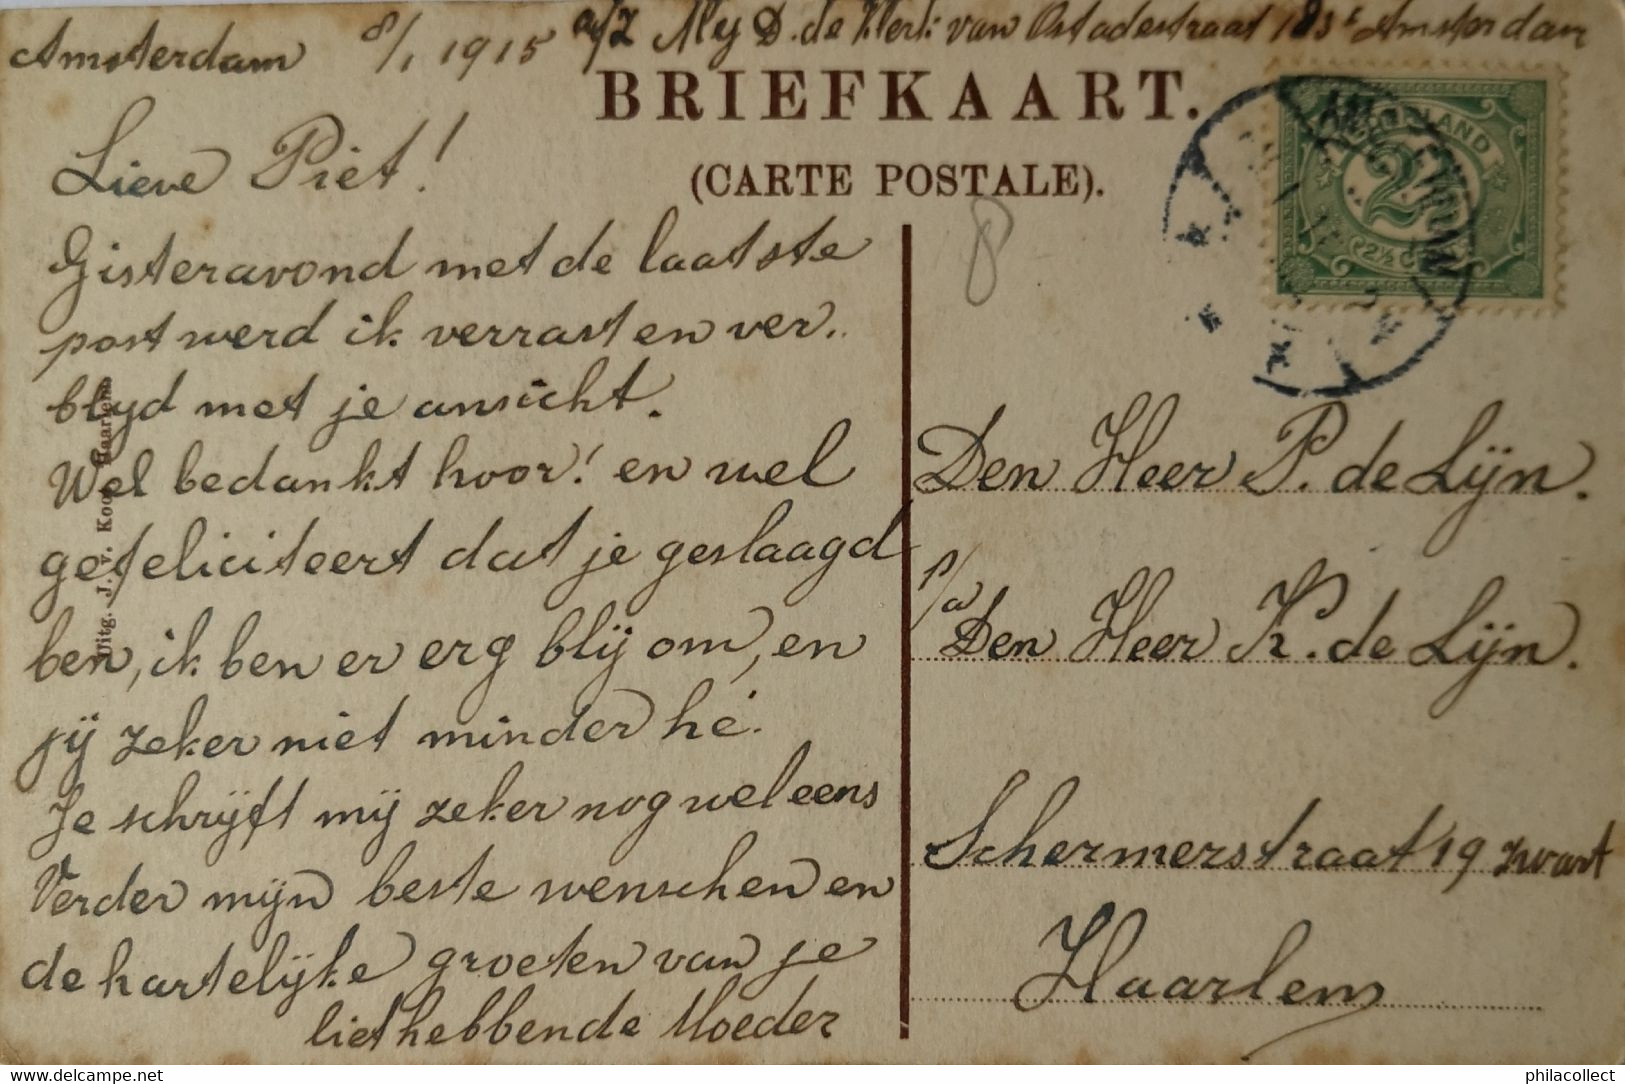 Amsterdam 8/1 1915 afz Aley D. de Klerk van Ostadestraat 183 Amsterdam
BRIEFKAART.
(CARTE POSTALE).
Lieve Piet!
Gisteravond met de laatste
post werd ik verrast en ver..
blyd met je ansicht.
Wel bedankt hoor! en wel
gefeliciteert dat je geslaagd
ben, ik ben er erg blij om, en
jij zeker niet minder hé.
Je schrijft mij zeker nog wel eens
Verder mijn beste wenschen en
de hartelijke groeten van je
liefhebbende Moeder
Uitg. J. v. Koo Haarlem
NEDERLAND
2½
2½ C
8
Den Heer P. de Lijn.
p/a Den Heer K. de Lijn.
Schermerstraat 19 zwart
Haarlem